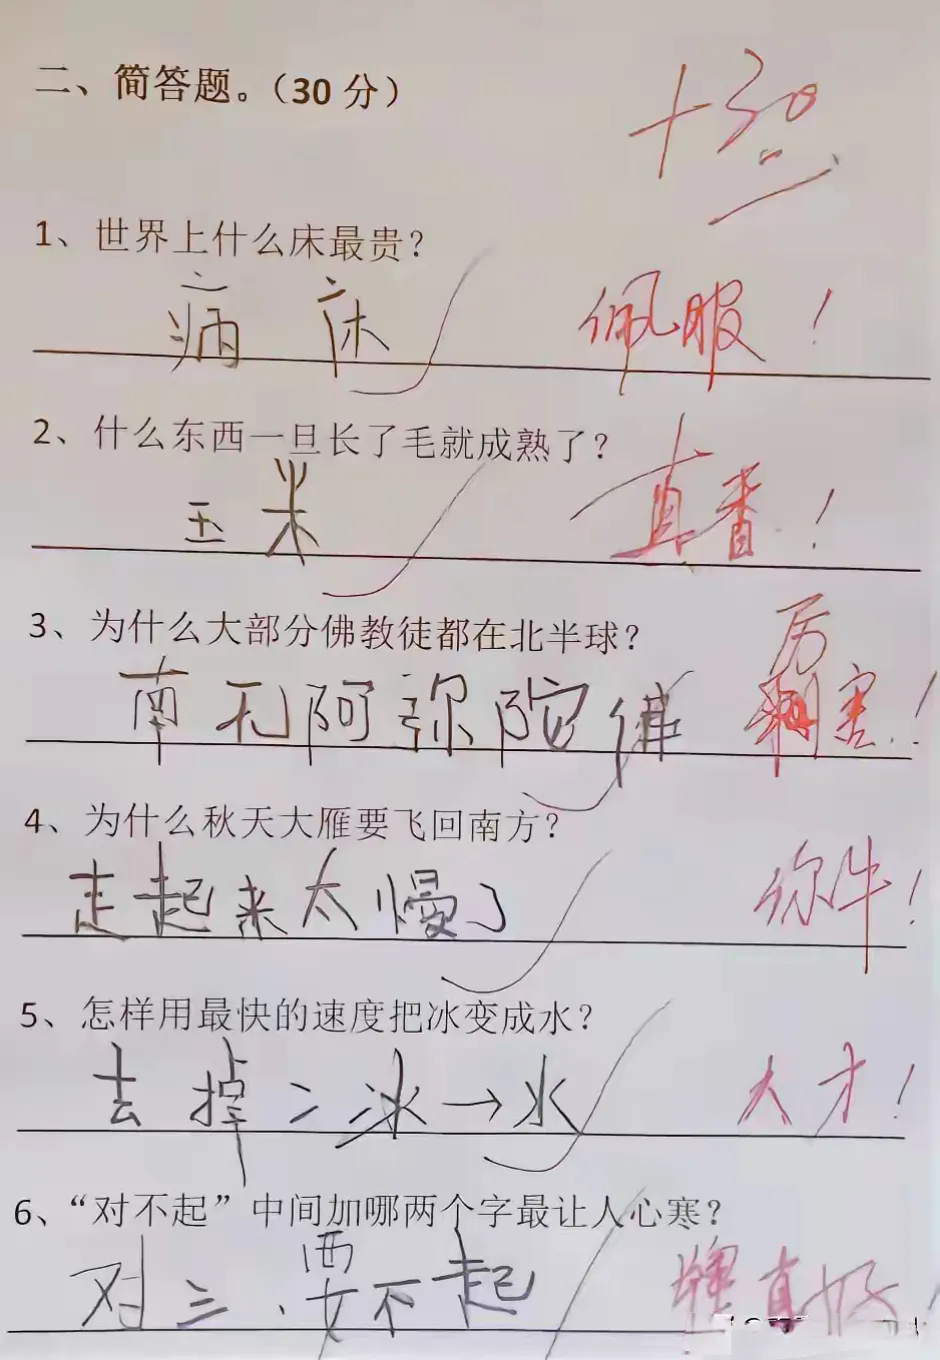 二、简答题。（30分）
+30
1、世界上什么床最贵？
病床
佩服！
2、什么东西一旦长了毛就成熟了？
玉米
真香！
3、为什么大部分佛教徒都在北半球？
南无阿弥陀佛
厉害！
4、为什么秋天大雁要飞回南方？
走起来太慢了
你牛！
5、怎样用最快的速度把冰变成水？
去掉冫冰→水
人才！
6、“对不起”中间加哪两个字最让人心寒？
对三、要不起
牌真好！